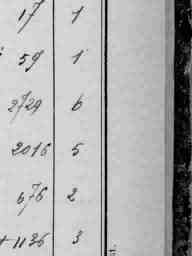 17 1
59 1
2729 6
2016 5
676 2
+ 1136 3